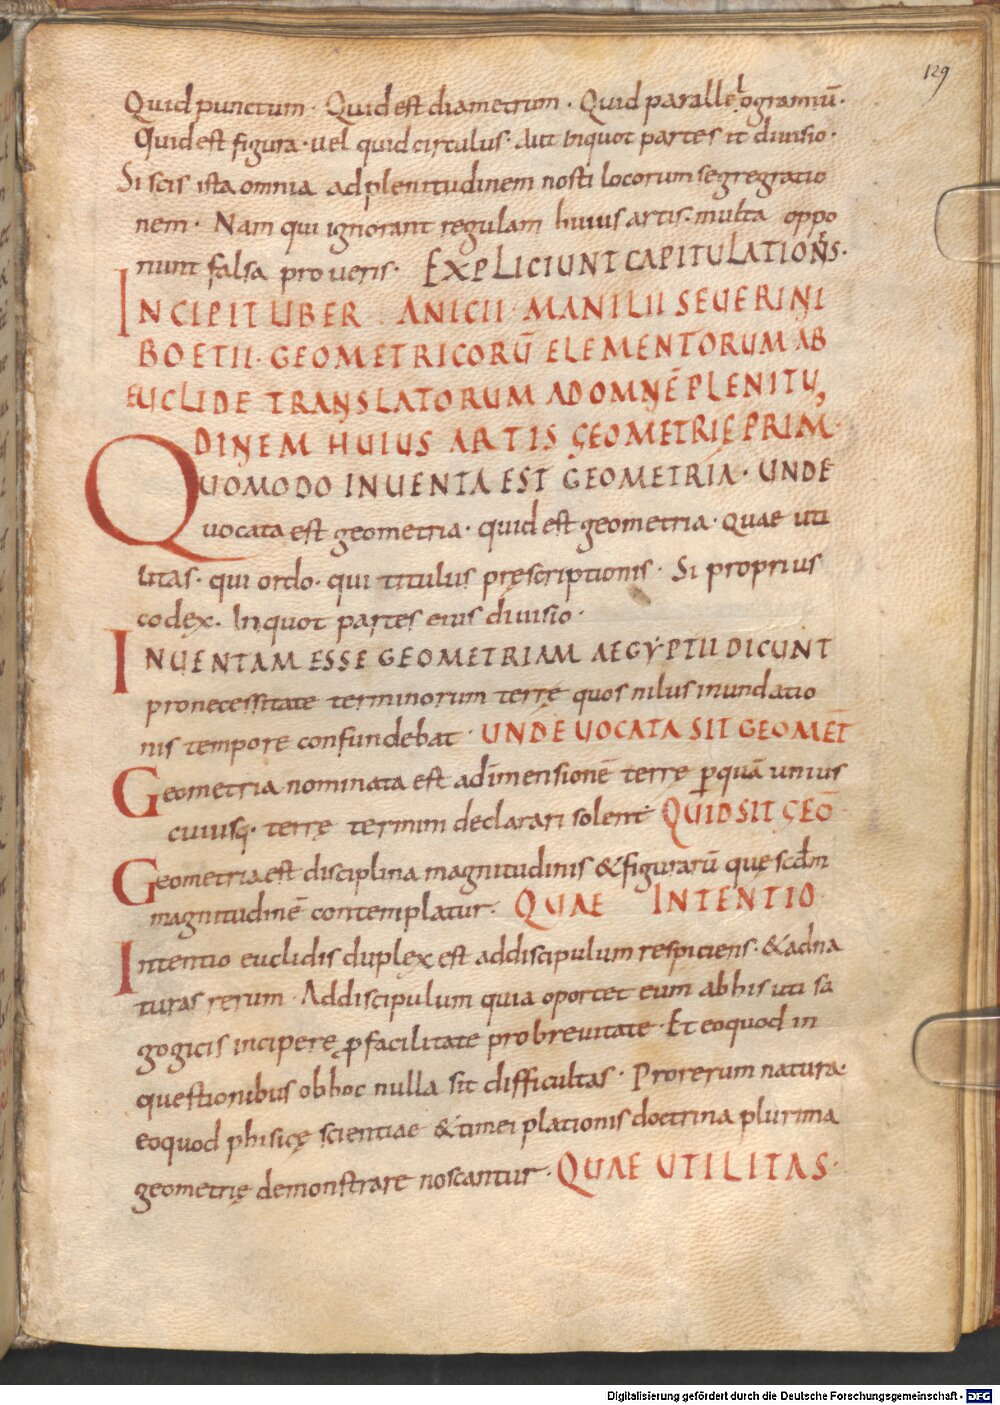 129
Quid punctum · Quid est diametrum · Quid parallelogrammū ·
Quid est figura · uel quid circulus · Aut in quot partes it diuisio ·
Si scis ista omnia ad plenitudinem nosti locorum segregatio
nem · Nam qui ignorant regulam huius artis · multa oppo
nunt falsa pro ueris · EXPLICIUNT CAPITULATIONES ·
INCIPIT LIBER ANICII MANILII SEUERINI
BOETII · GEOMETRICORŪ ELEMENTORUM AB
EUCLIDE TRANSLATORUM AD OMNĒ PLENITU
DINEM HUIUS ARTIS GEOMETRIE PRIM ·
QUOMODO INUENTA EST GEOMETRIA · UNDE
uocata est geometria · quid est geometria · quae uti
litas · qui ordo · qui titulus pręscriptionis · Si proprius
codex · In quot partes eius diuisio ·
INUENTAM ESSE GEOMETRIAM AEGYPTII DICUNT
pro necessitate terminorum terrę quos nilus inundatio
nis tempore confundebat · UNDE UOCATA SIT GEOMET̄
Geometria nominata est a dimensionē terrę p̱ quā unius
cuiusq · terrę termini declarari solent · QUID SIT GEŌ
Geometria est disciplina magnitudinis & figurarū quę scdm
magnitudinē contemplatur · QUAE INTENTIO
Intentio euclidis duplex est ad discipulum respiciens · & ad na
turas rerum · Ad discipulum quia oportet eum ab his uti sa
gogicis incipere ꝓ facilitate pro breuitate · Et eo quod in
questionibus ob hoc nulla sit difficultas · Pro rerum natura ·
eo quod phisicę scientiae & timei plationis doctrina plurima
geometrię demonstrare noscantur · QUAE UTILITAS ·
Digitalisierung gefördert durch die Deutsche Forschungsgemeinschaft - DFG